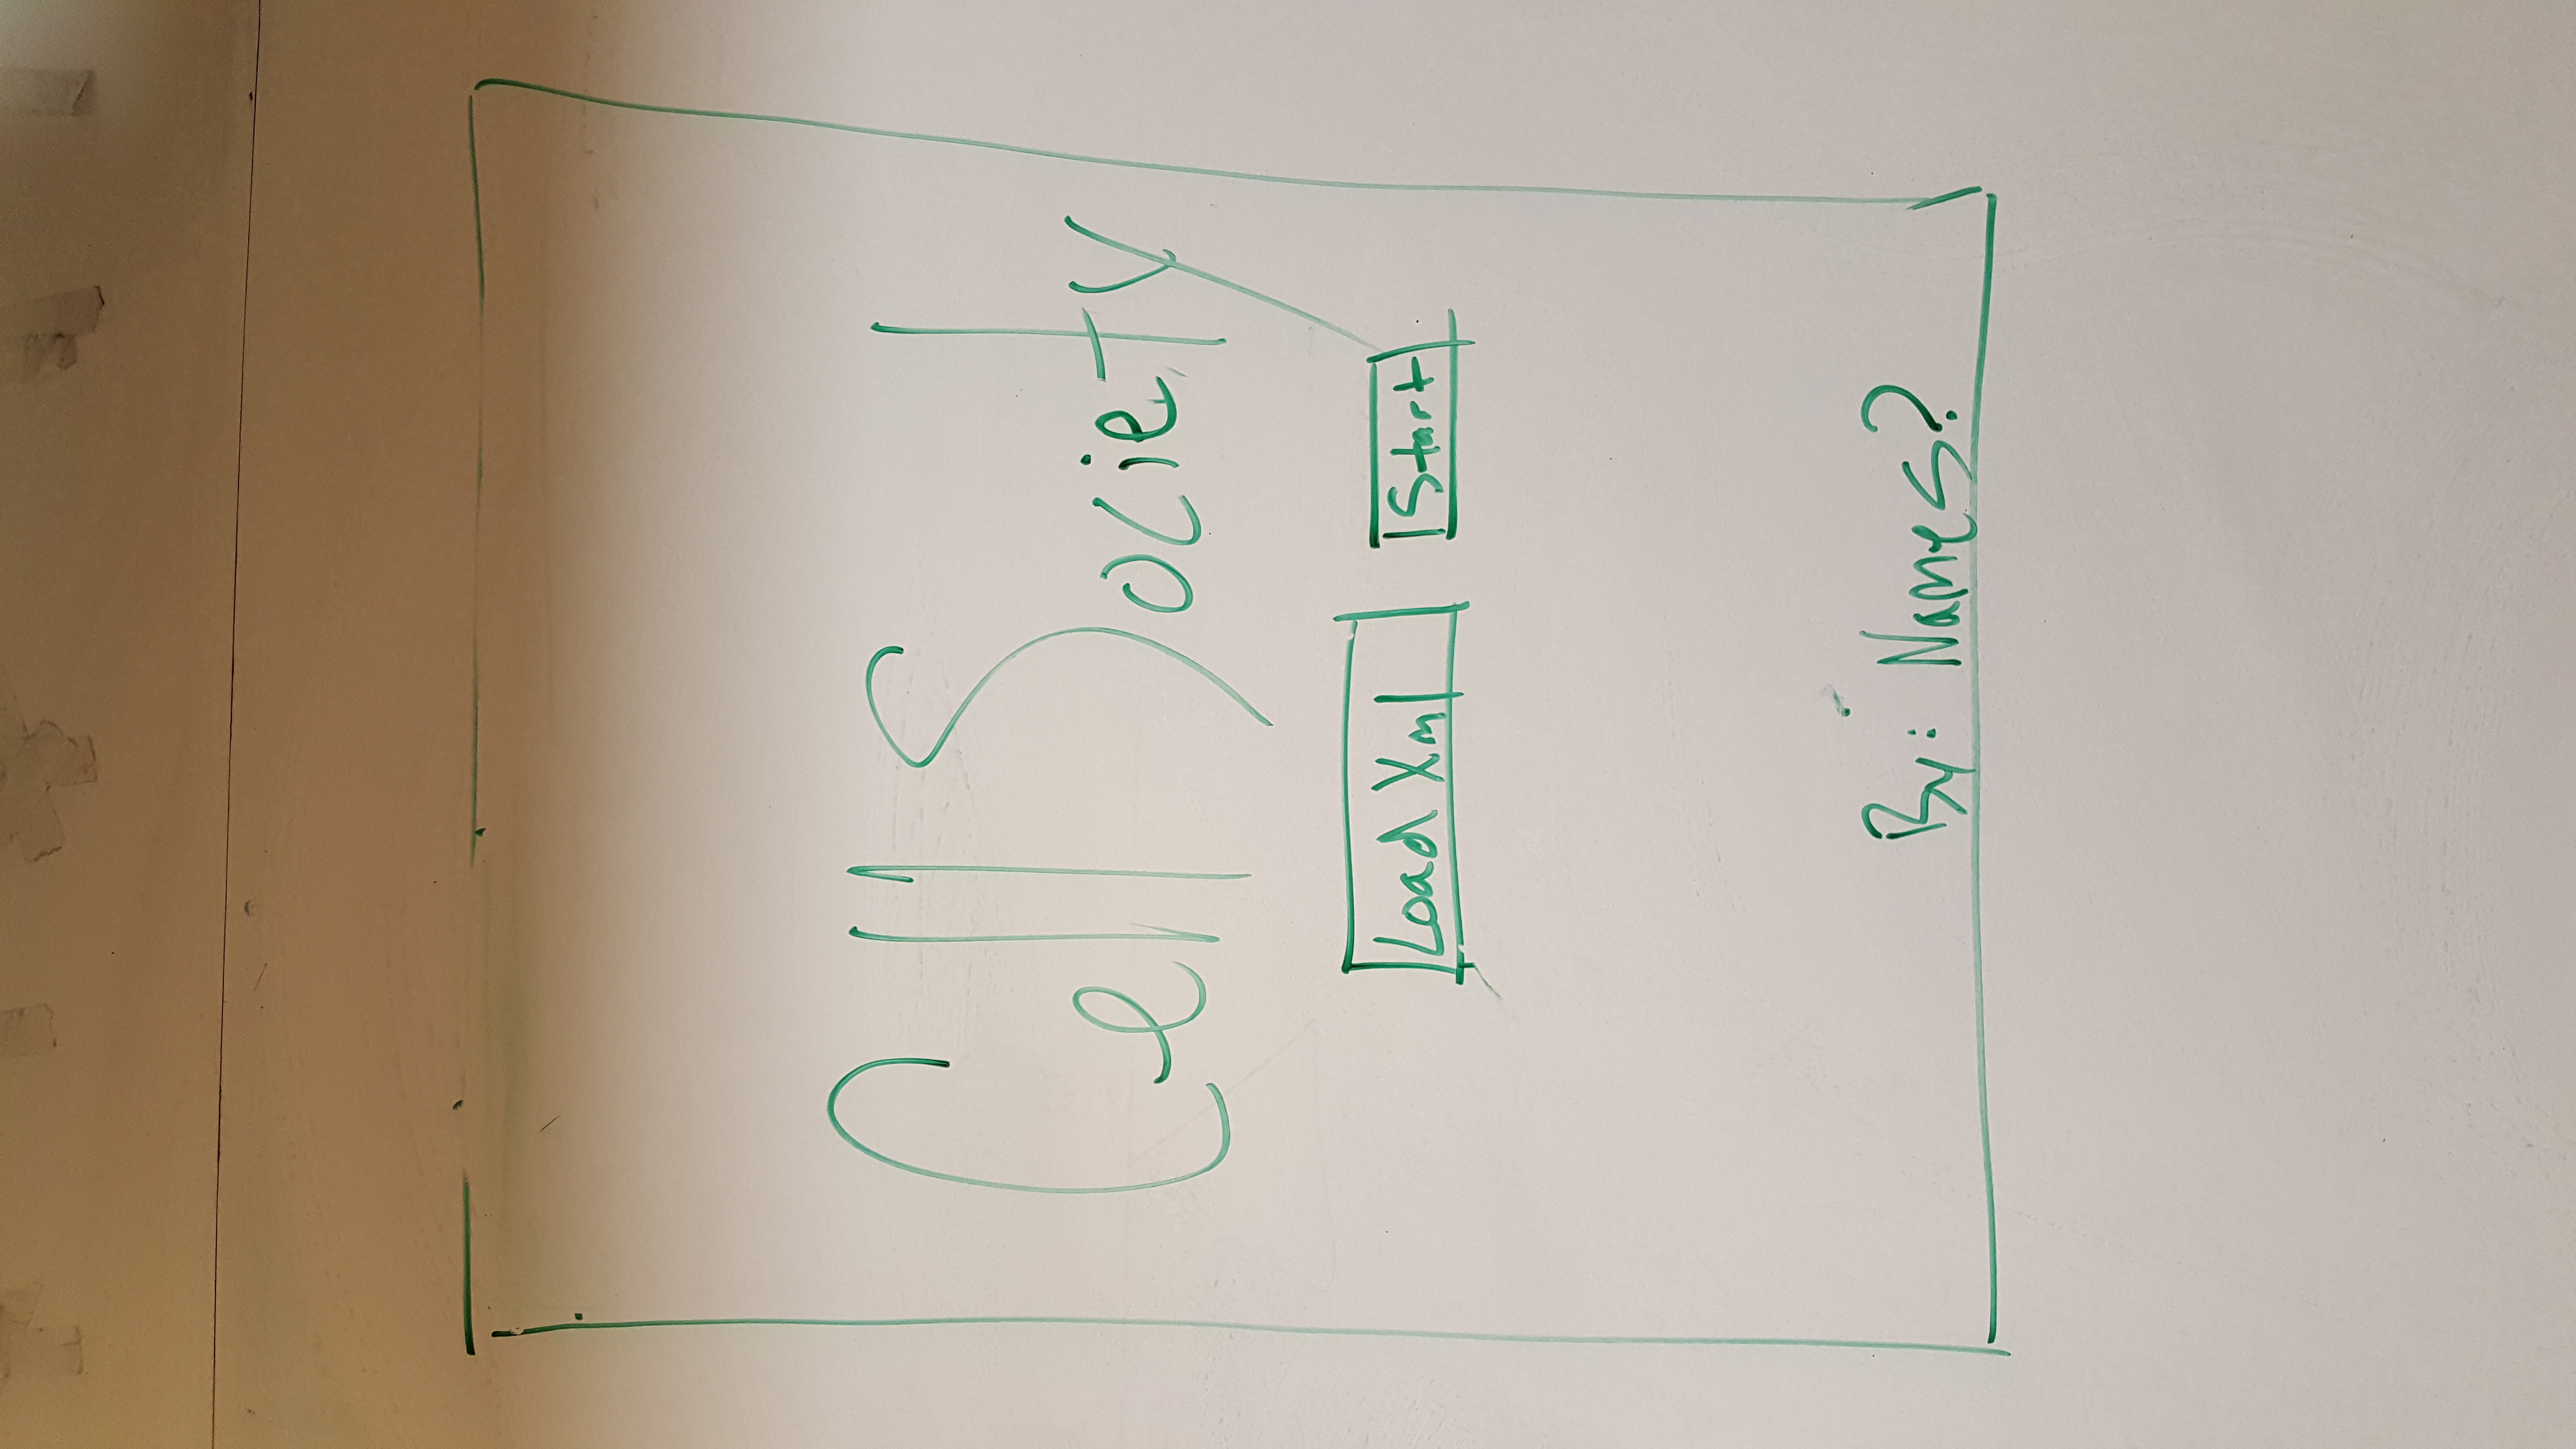 Cell Society
Load Xml Start
By: Names?